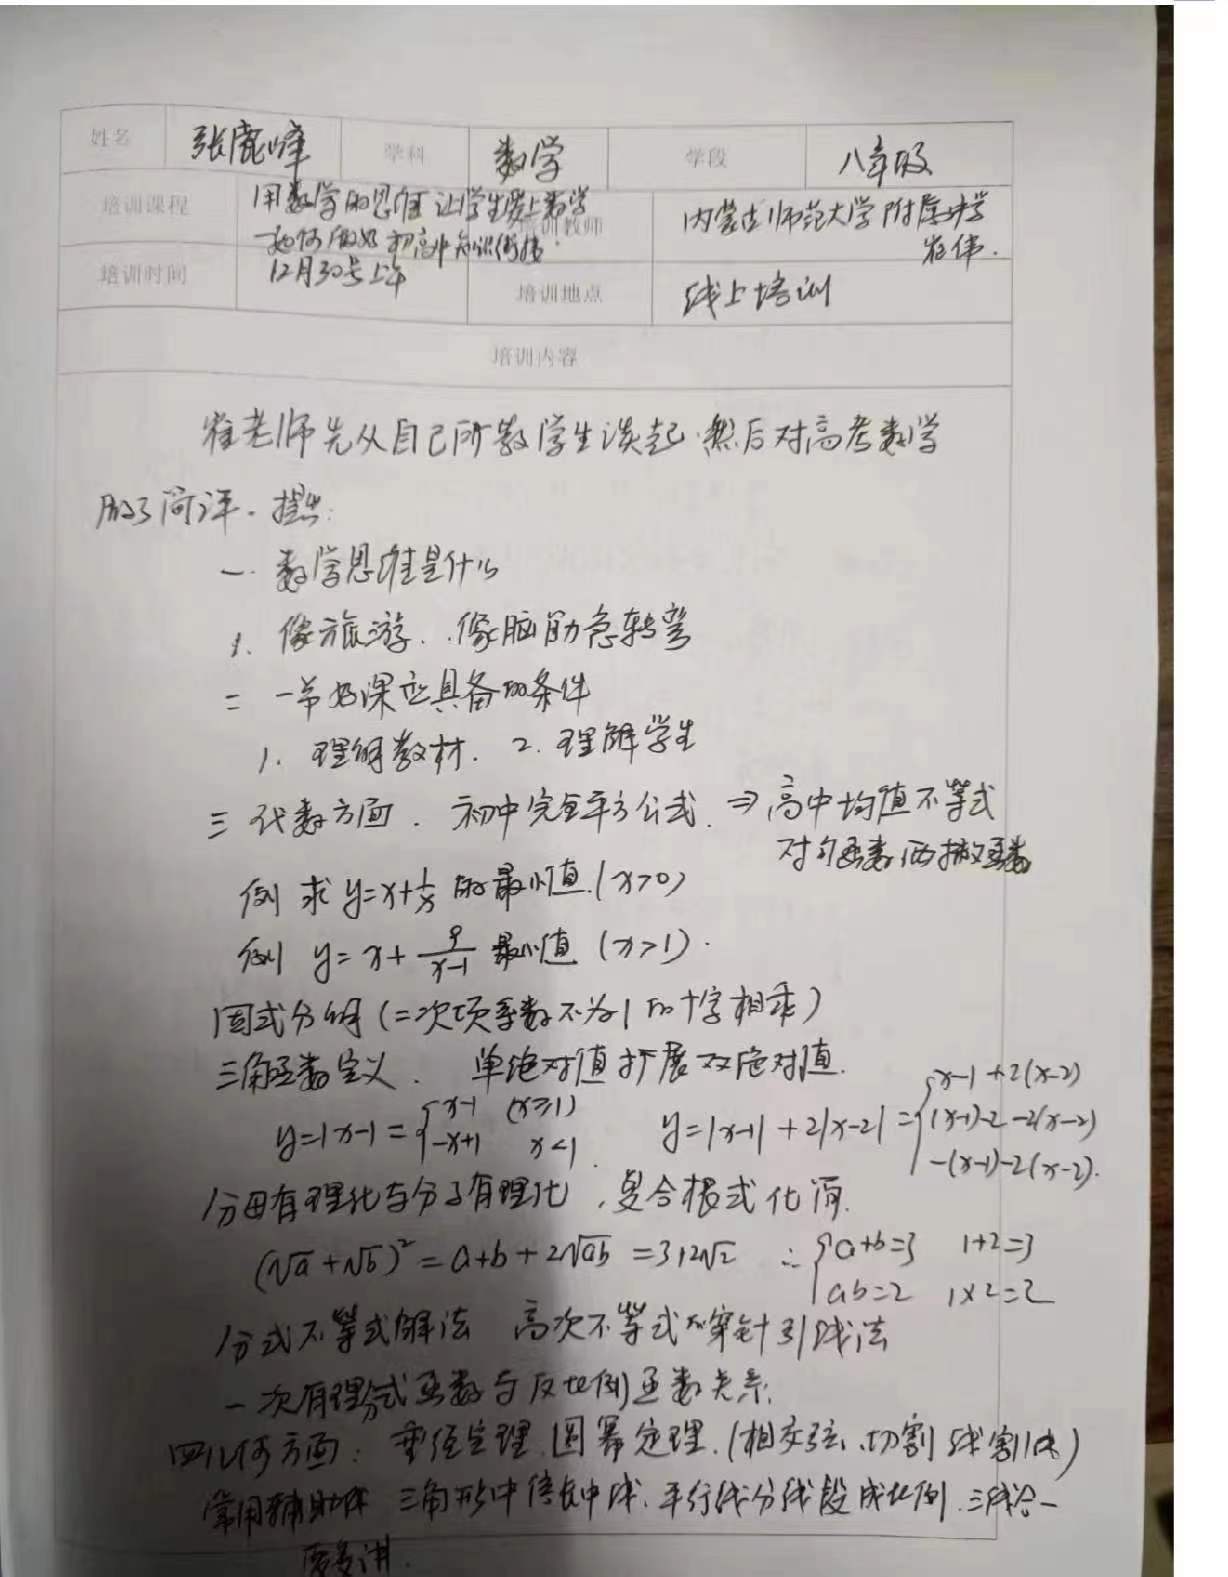 姓名 张鹿峰 学科 数学 学段 八年级
培训课程 用数学的思维让学生爱上数学 如何做好初高中知识衔接 培训教师 内蒙古师范大学附属中学 崔伟.
培训时间 12月30号上午 培训地点 线上培训
培训内容
崔老师先从自己所教学生谈起.然后对高考数学
做了简评.提出:
一.数学思维是什么
1.像旅游.像脑筋急转弯
二 一节好课应具备的条件
1.理解教材.2.理解学生
三 代数方面.初中完全平方公式.⇒高中均值不等式
对勾函数 两撇函数
例 求y=x+1/x的最小值.(x>0)
例 y=x+9/(x-1) 最小值 (x>1).
因式分解(二次项系数不为1的十字相乘)
三角函数定义. 单绝对值扩展双绝对值.
y=|x-1|={x-1 (x≥1) -x+1 x<1. y=|x-1|+2|x-2|={x-1+2(x-2) (x-1)-2-2(x-2) -(x-1)-2(x-2).
分母有理化与分子有理化,复合根式化简.
(√a+√b)²=a+b+2√ab=3+2√2 ∴{a+b=3 1+2=3
ab=2 1×2=2
分式不等式解法 高次不等式 穿针引线法
一次有理分式函数与反比例函数关系.
四 几何方面:垂径定理.圆幂定理.(相交弦、切割线 割线)
常用辅助线 三角形中倍长中线.平行线分线段成比例.三线合一
要多讲.